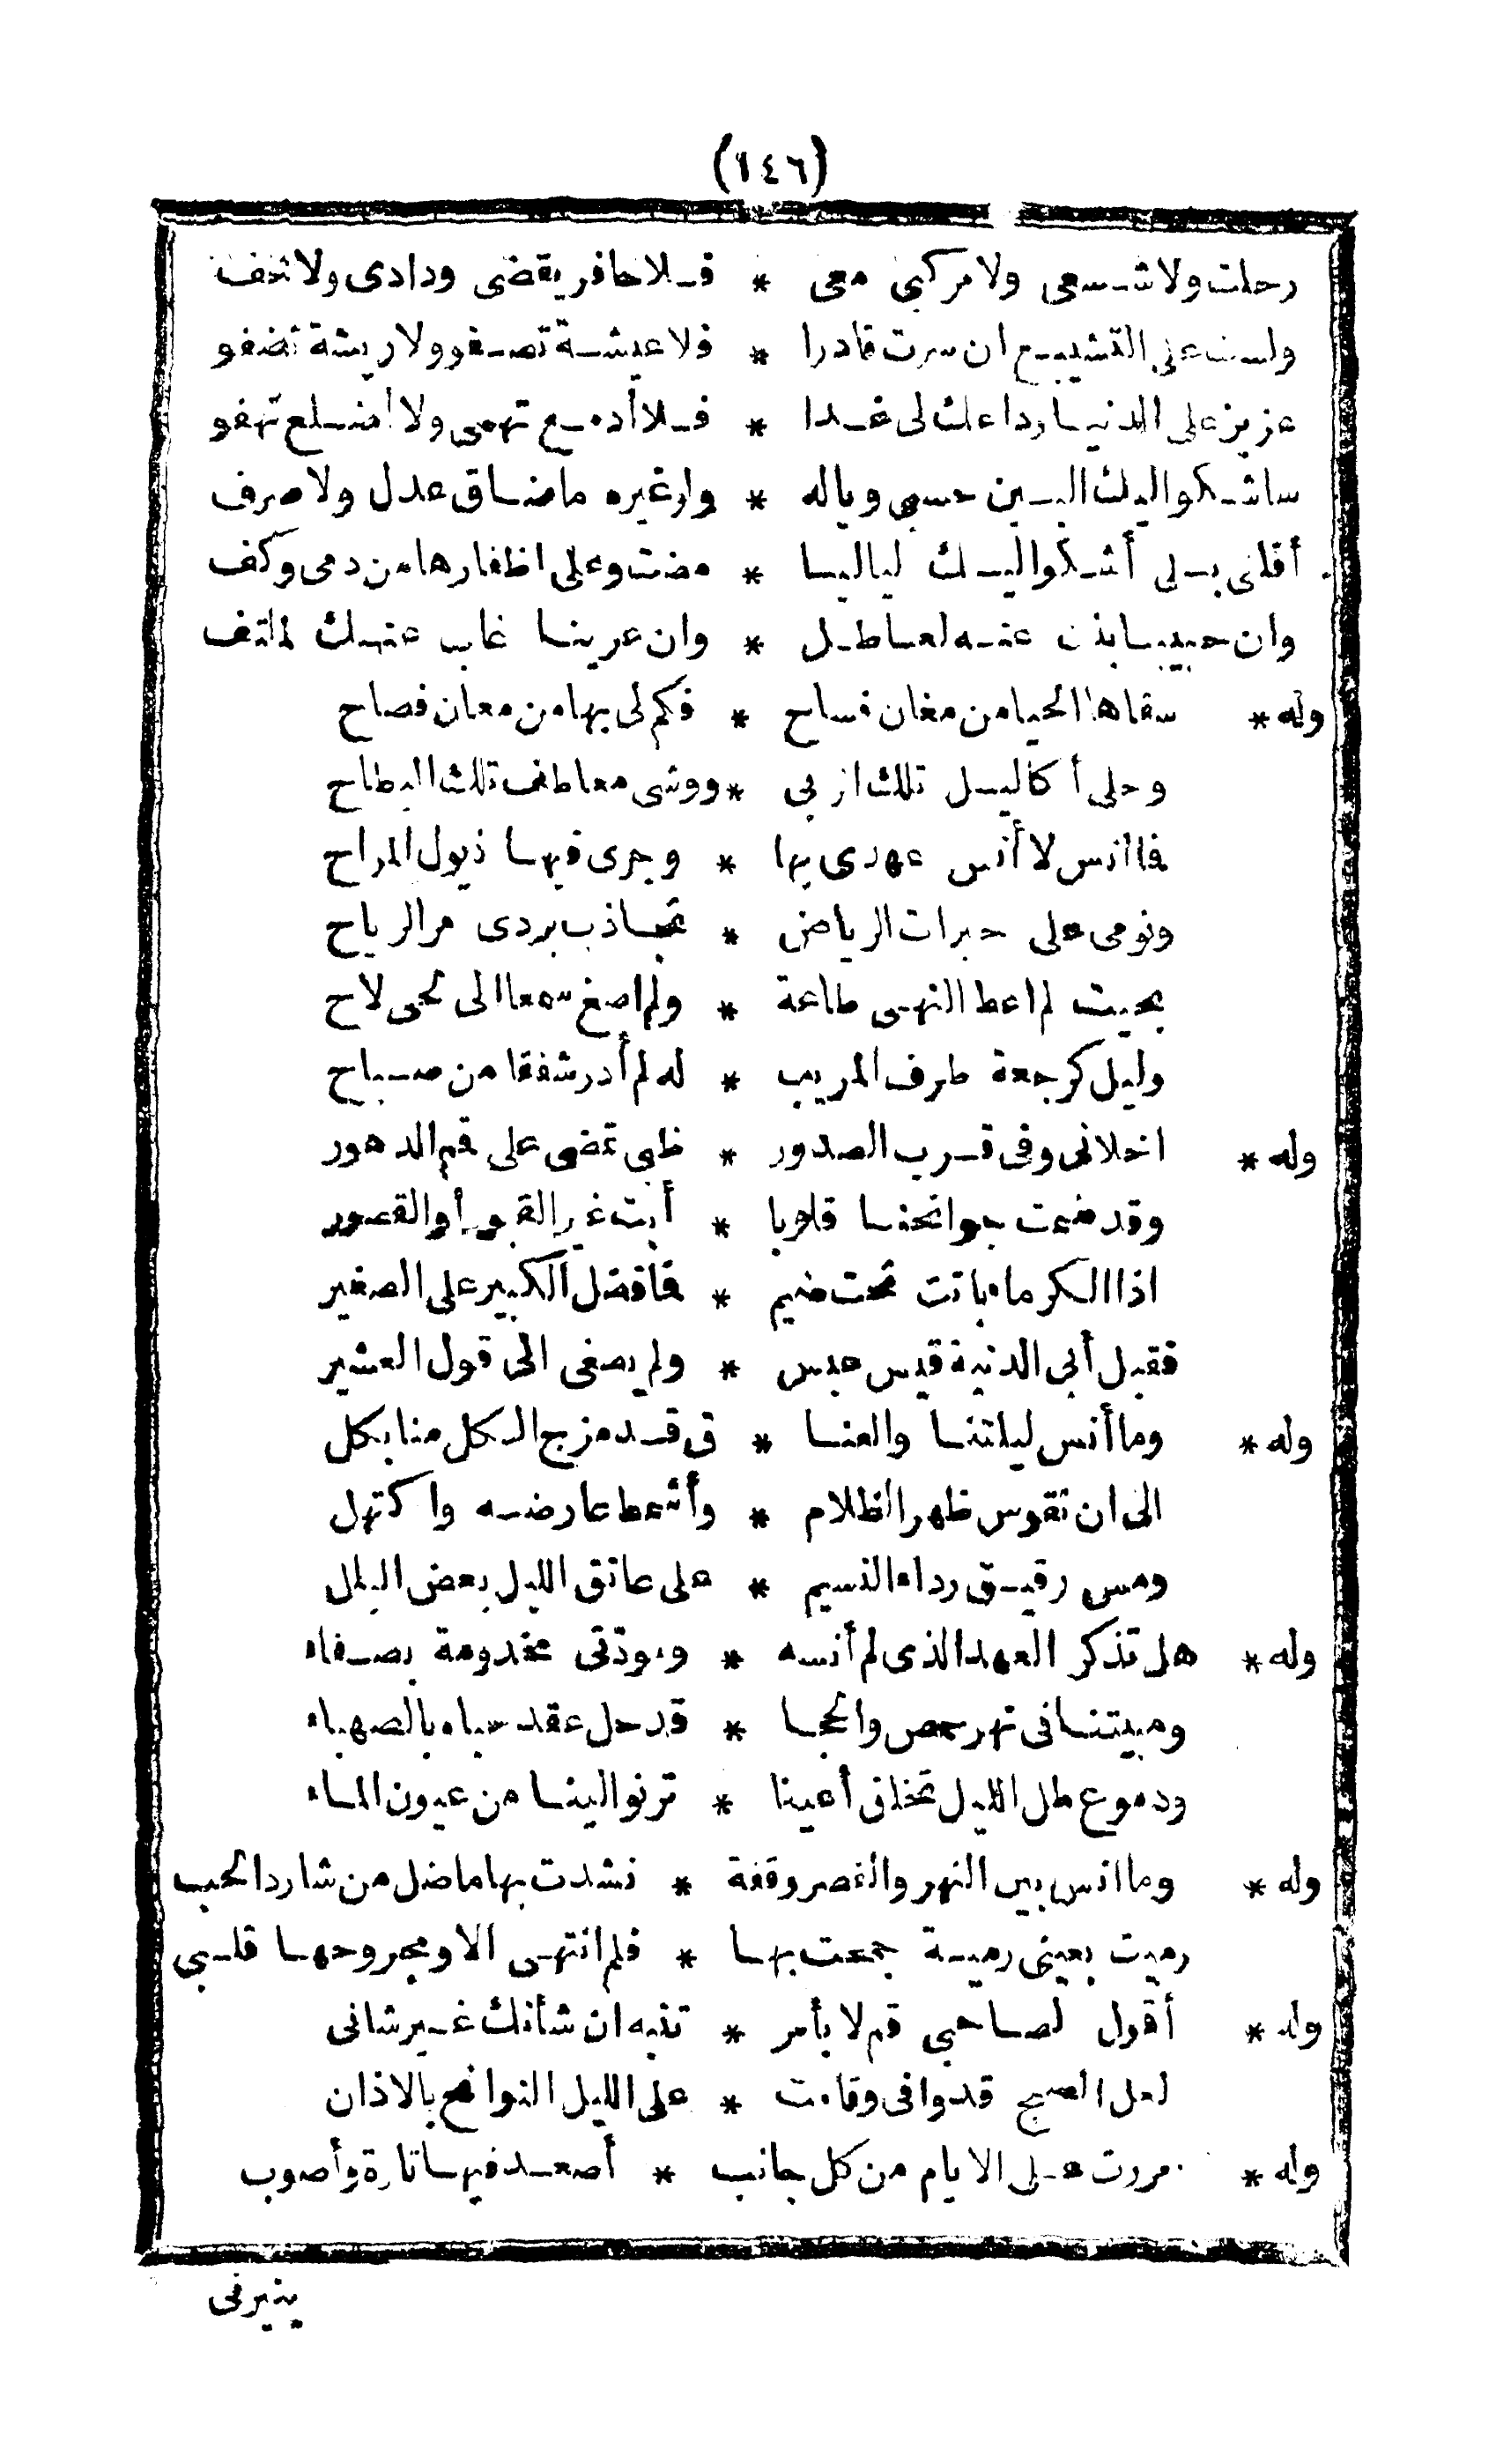 (١٤٦)
رحلت ولا شسعى ولا مركبى معى * فلا حافر يقضى ودادى ولا خف
ولست على التشييع ان سرت قادرا * فلا عيشة تصفو ولا ريشة تضفو
عزيز على الدنيا وداعك لى غدا * فلا أدمع تهمى ولا أضلع تهفو
ساشكو اليك البين حسبى وياله * واو غيره ما ضاق عدل ولا صرف
أقلنى بلى أشكو اليك لياليا * مضت وعلى اظفارها من دمى وكف
وان حبيبا بذت عنه لعاطل * وان عرينا غاب عنك لملتف
وله * سقاها الحيا من مغان فساح * فكم لى بها من معان فصاح
وحلى أكاليل تلك الربى * ووشى معاطف تلك البطاح
فما انس لا أنس عهدى بها * وجرى فيها ذيول المراح
ونومى على حبرات الرياض * تجاذب بردى مر الرياح
بحيث لم اعط النهى طاعة * ولم اصغ سمعا الى لحى لاح
وليل كرجعة طرف المريب * له لم أدر شفقا من صباح
وله * اخلانى وفى قرب الصدور * ظبى تمضى على قمم الدهور
وقد ضمت جوانحنا قلوبا * أبت غير القبور أو القصور
اذا الكرماء باتت تحت ضيم * فما فضل الكبير على الصغير
فقبل أبى الدنية قيس عبس * ولم يصغى الى قول العشير
وله * وما أنس ليلتنا والعنا * ق قد مزج الكل منا بكل
الى ان تقوس ظهر الظلام * وأشمط عارضه واكتهل
ومس رقيق رداء النسيم * على عاتق الليل بعض البلل
وله * هل تذكر العهد الذى لم أنسه * ومودتى مخدومة بصفاء
ومبيتنا فى نهر حمص والحجا * قد حل عقد حباه بالصهباء
ودموع طل الليل تخلق أعينا * ترنو الينا من عيون الماء
وله * وما انس بين النهر والقصر وقفة * نشدت بها ما ضل من شارد الحب
رميت بعينى رمية جمعت بها * فلم انتهى الا ومجروحها قلبى
وله * أقول لصاحبى قم لا بأمر * تنبه ان شأنك غير شانى
لعل الصبح قد وافى وقامت * على الليل النوائح بالاذان
وله * مررت على الايام من كل جانب * أصعد فيها تارة وأصوب
ينيرفى